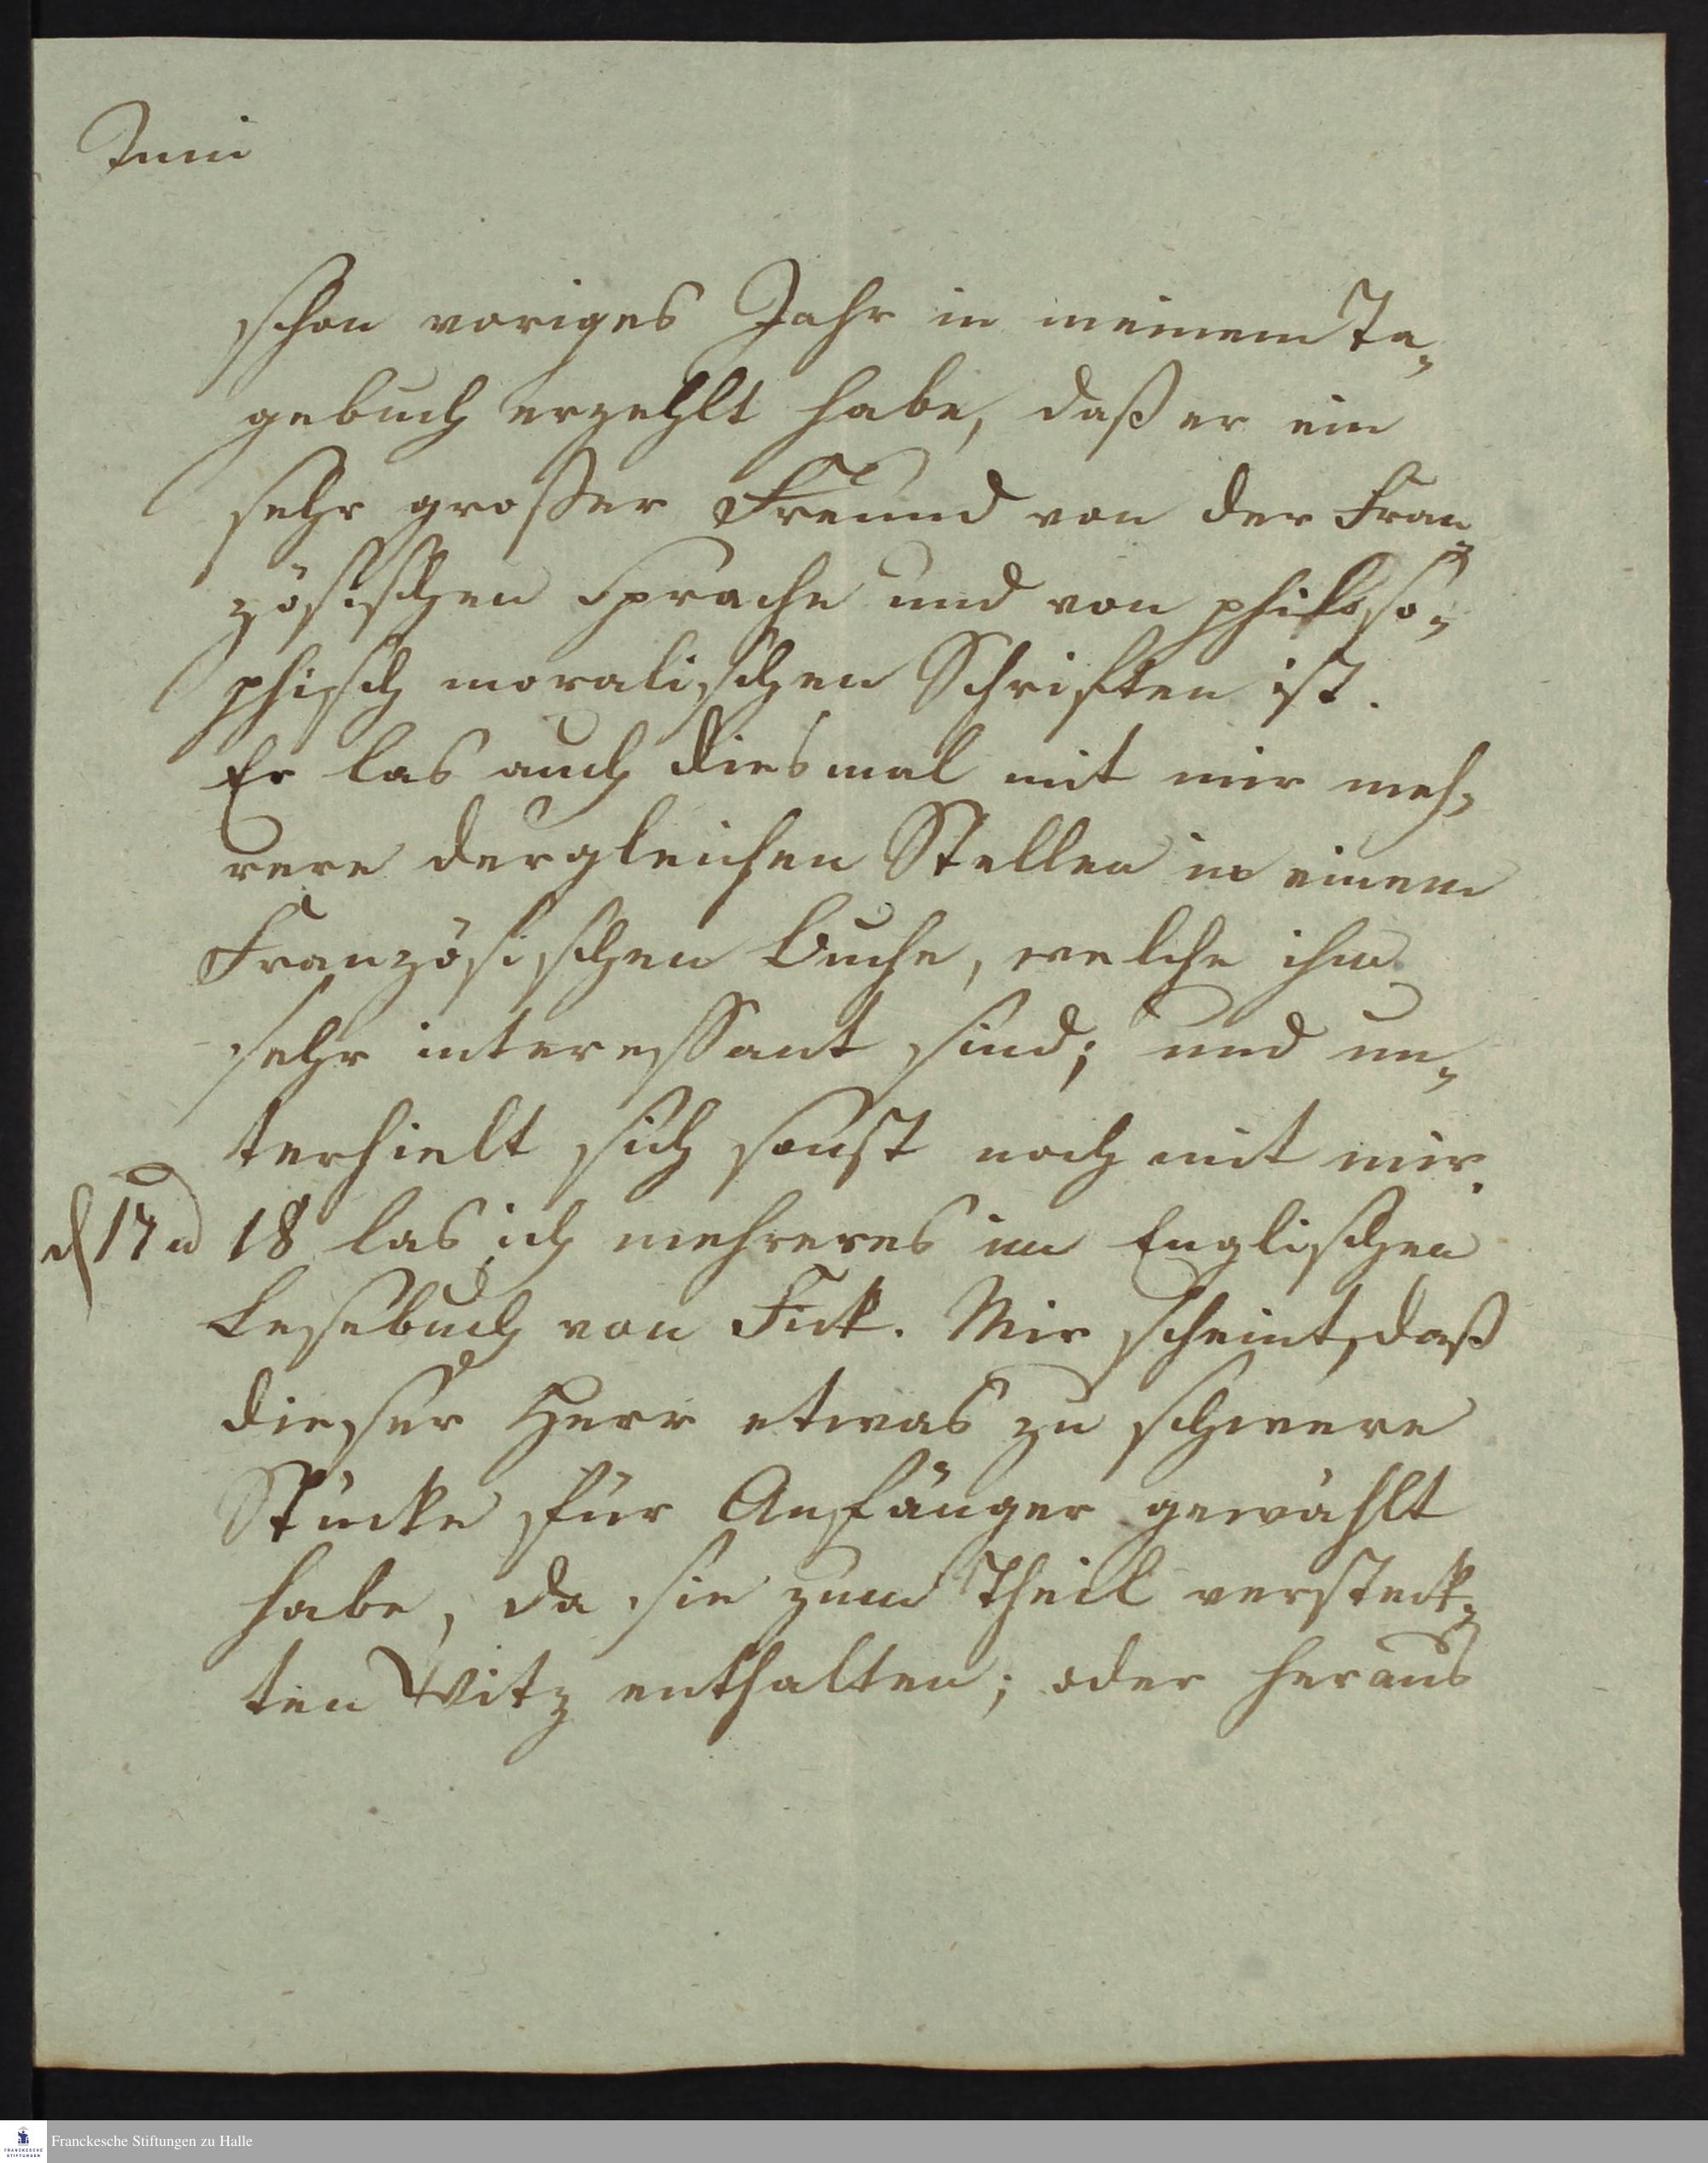 Juni
schon voriges Jahr in meinem Ta„
gebuch erzehlt habe, daß er ein
sehr großer Freund von der Fran„
zösischen Sprache und von philoso„
phisch moralischen Schriften ist.
Er las auch diesmal mit mir meh„
rere dergleichen Stellen in einem
Französischen Buche, welche ihm
sehr interessant sind; und un„
terhielt sich sonst noch mit mir.
d 17 u 18 las ich mehreres im Englischen
Lesebuch von Fick. Mir scheint, daß
dieser Herr etwas zu schwere
Stücke für Anfänger gewählt
habe, da sie zum Theil versteck„
ten Witz enthalten; oder heraus
Franckesche Stiftungen zu Halle
FRANCKESCHE
STIFTUNGEN